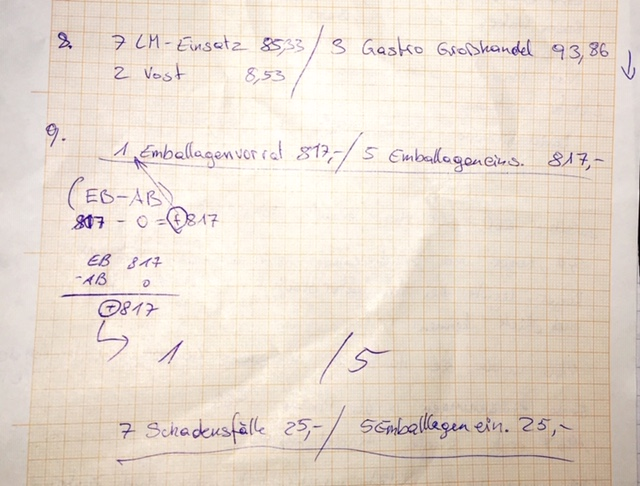 8. 7 LM-Einsatz 85,33 / 3 Gastro Großhandel 93,86
2 Vost 8,53
9.
1 Emballagenvorrat 817,- / 5 Emballageneins. 817,-
(EB-AB)
817 - 0 = + 817
EB 817
-AB 0
+817
1 / 5
7 Schadensfälle 25,- / 5 Emballagen ein. 25,-